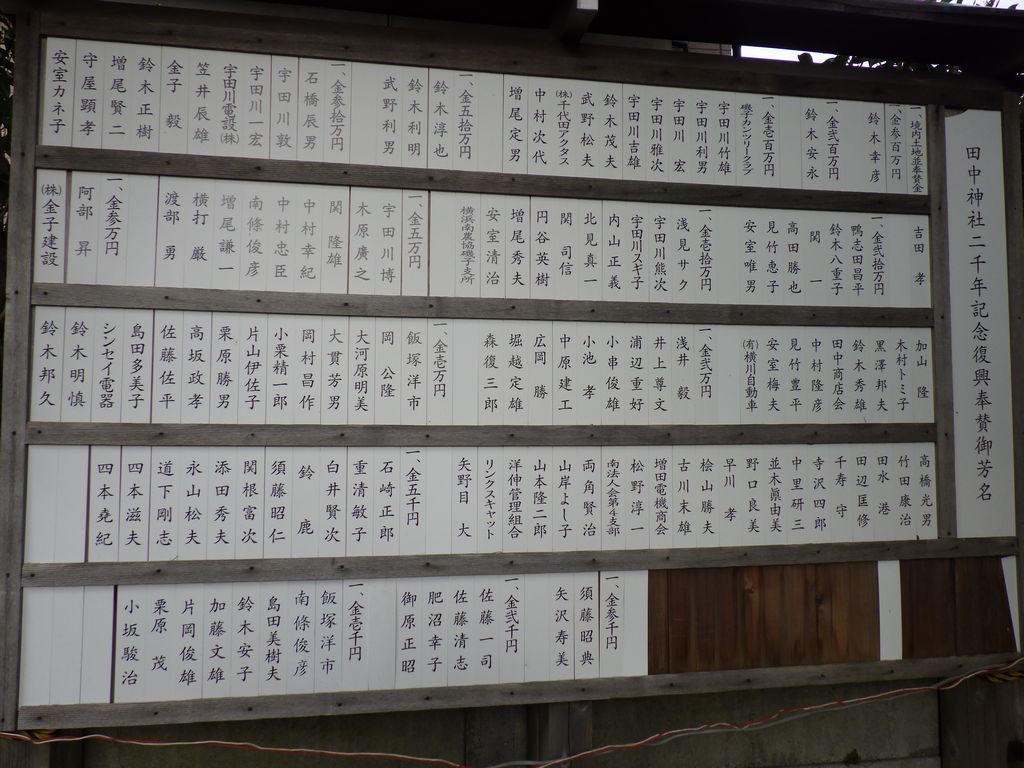 田中神社二千年記念復興奉賛御芳名
一、境内土地並奉賛金
一、金参百万円
鈴木幸彦
一、金弐百万円
鈴木安永
一、金壱百万円
磯子カンツリークラブ
宇田川竹雄
宇田川利男
宇田川宏
宇田川雅次
宇田川吉雄
鈴木茂夫
武野松夫
㈱千代田アクタス
中村次代
増尾定男
一、金五拾万円
鈴木淳也
鈴木利明
武野利男
一、金参拾万円
石橋辰男
宇田川敦
宇田川一宏
宇田川電設㈱
笠井辰雄
金子毅
鈴木正樹
増尾賢二
守屋顕孝
安室カネ子
吉田孝
一、金弐拾万円
鴨志田昌平
鈴木八重子
関一
高田勝也
見竹恵子
安室唯男
一、金壱拾万円
浅見サク
宇田川熊次
宇田川スギ子
内山正義
北見真一
関司信
円谷英樹
増尾秀夫
安室清治
横浜南農協磯子支所
一、金五万円
宇田川博
木原廣之
関隆雄
中村幸紀
中村忠臣
南條俊彦
増尾謙一
横打厳
渡部勇
一、金参万円
阿部昇
㈱金子建設
加山隆
木村トミ子
黒澤邦夫
鈴木秀雄
田中商店会
中村隆彦
見竹豊平
安室梅夫
㈲横川自動車
一、金弐万円
浅井毅
井上尊文
浦辺重好
小串俊雄
小池孝
中原建工
広岡勝
堀越定雄
森復三郎
一、金壱万円
飯塚洋市
岡公隆
大河原明美
大貫芳男
岡村昌作
小栗精一郎
片山伊佐子
栗原勝男
高坂政孝
佐藤佐平
島田多美子
シンセイ電器
鈴木明慎
鈴木邦久
高橋光男
竹田康治
田水港
田辺匡修
千寿守
寺沢四郎
中里研三
並木眞由美
野口良美
早川孝
桧山勝夫
古川末雄
増田電機商会
松野淳一
南法人会第4支部
両角賢治
山岸よし子
山本隆二郎
洋伸管理組合
リンクスキャット
矢野目大
一、金五千円
石崎正郎
重清敏子
白井賢次
鈴鹿
須藤昭仁
関根富次
添田秀夫
永山松夫
道下剛志
四本滋夫
四本堯紀
一、金参千円
須藤昭典
矢沢寿美
一、金弐千円
佐藤一司
佐藤清志
肥沼幸子
御原正昭
一、金壱千円
飯塚洋市
南條俊彦
島田美樹夫
鈴木安子
加藤文雄
片岡俊雄
栗原茂
小坂駿治